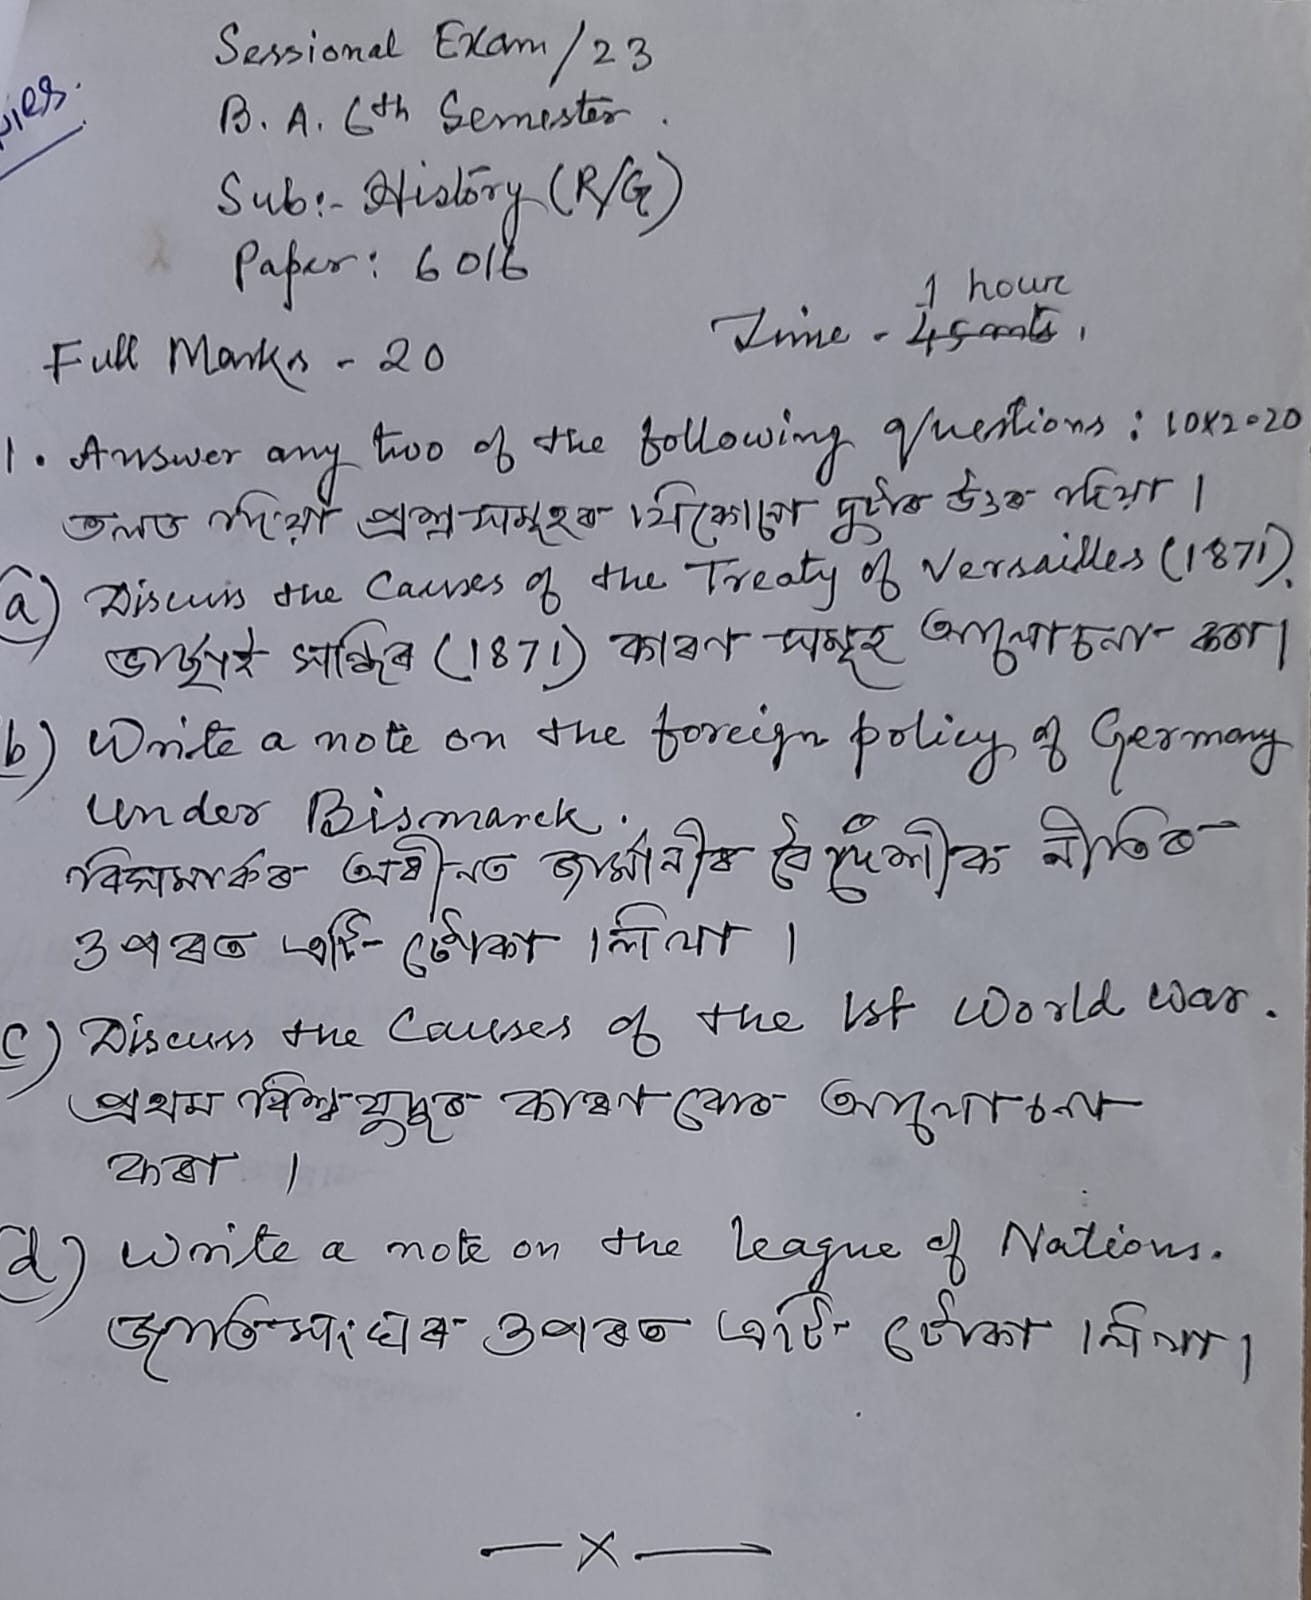 Sessional Exam/23
B. A. 6th Semester.
Sub:- History (R/G)
Paper: 6016
1 hour
Full Marks - 20
Time -
1. Answer any two of the following questions: 10x2=20
তলত দিয়া প্ৰশ্ন সমূহৰ যিকোনো দুটাৰ উত্তৰ দিয়া।
a) Discuss the Causes of the Treaty of Versailles (1871).
ভাৰ্ছাই সন্ধিৰ (1871) কাৰণ সমূহ আলোচনা কৰা।
b) Write a note on the foreign policy of Germany
under Bismarck.
বিসমাৰ্কৰ অধীনত জাৰ্মানীৰ বৈদেশীক নীতিৰ
ওপৰত এটি টোকা লিখা।
c) Discuss the Causes of the 1st World War.
প্ৰথম বিশ্বযুদ্ধৰ কাৰণ বোৰ আলোচনা
কৰা।
d) Write a note on the League of Nations.
জাতিসংঘৰ ওপৰত এটি টোকা লিখা।
—x—